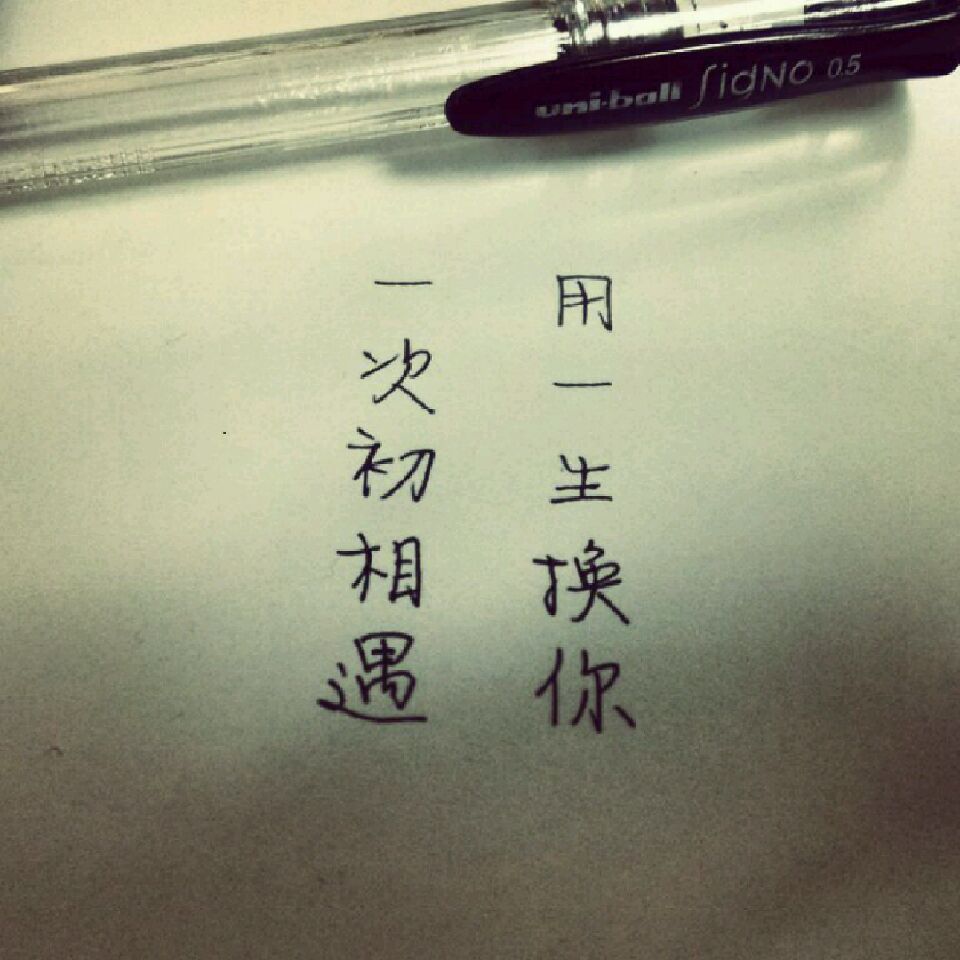 uni-ball SigNO 0.5
用一生換你
一次初相遇